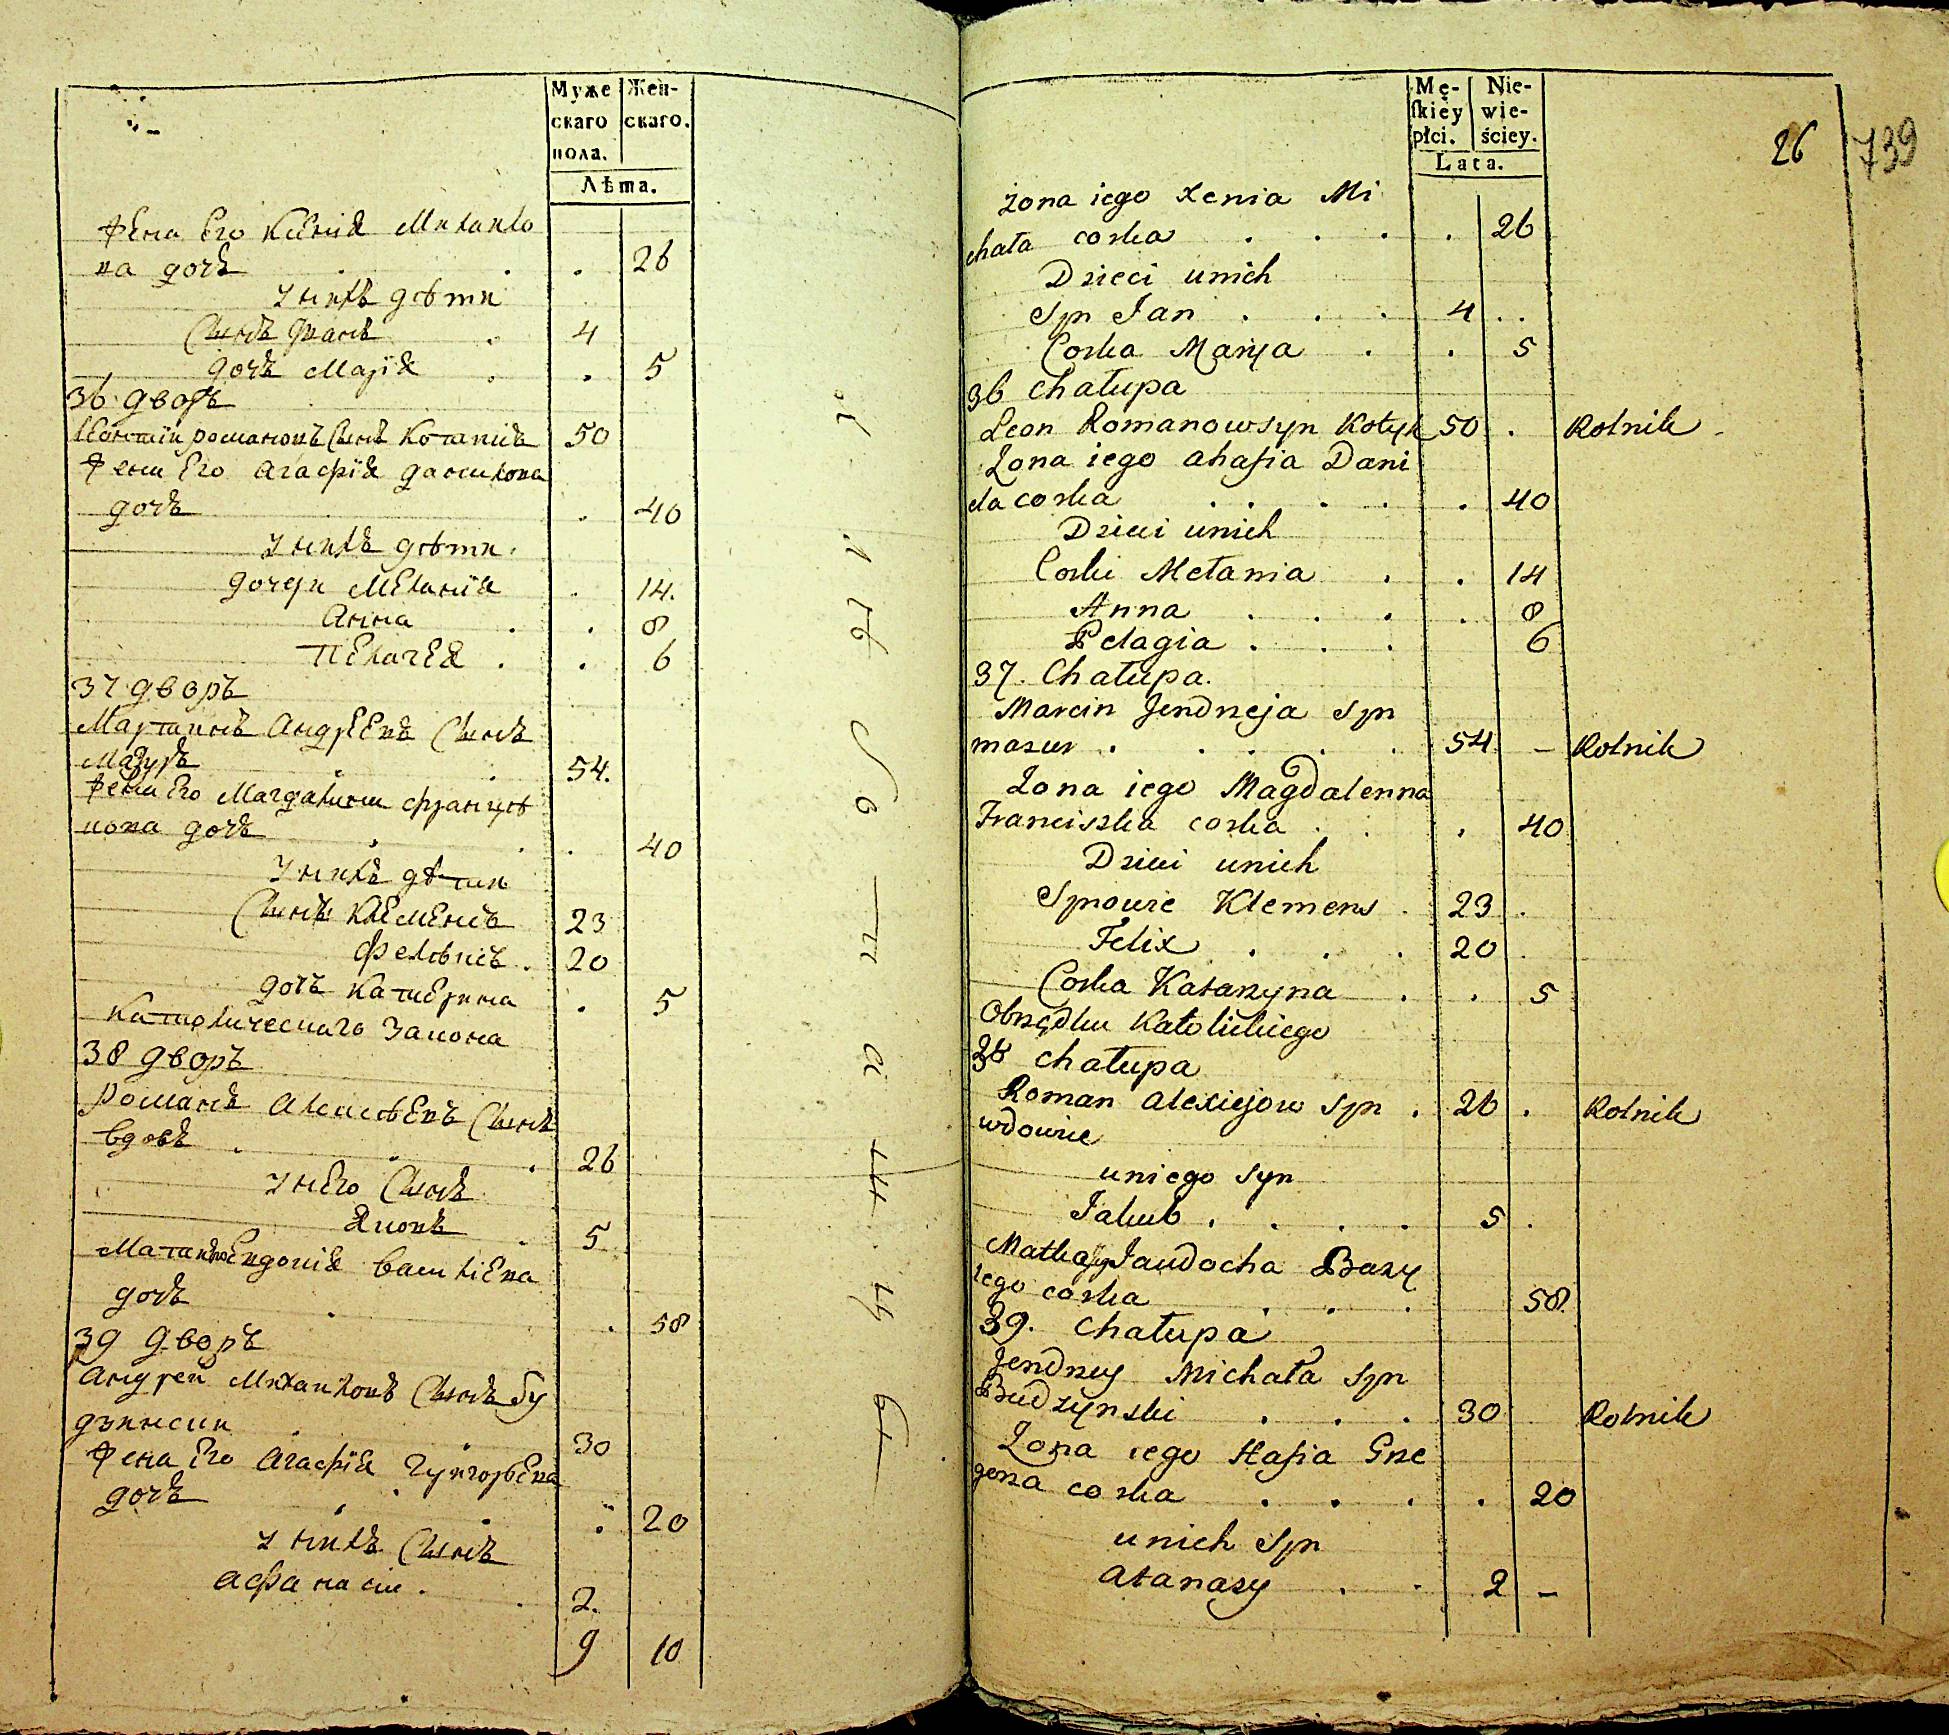 Муже
скаго
пола.
Жен-
скаго.
Лѣта.
жена Его Ксенія Михайло
на дочь . . . 26
У нихъ дѣти
Сынъ Иванъ . 4
дочь Марія . . 5
36 дворъ
Леонтій романовъ Сынъ Котыкъ 50
жена Его Агафія данилова
дочь . 40
У нихъ дѣти.
дочери Меланія . 14.
Анна . . 8
Пелагея . . 6
37 дворъ
Мартинъ Андреевъ Сынъ
Мазуръ . . 54.
жена Его Магдалина францѣ
шкова дочь . . . 40
У нихъ дѣти
Сынъ Клеменсъ 23
Феликсъ . 20
дочь Катерина . 5
Католическаго Закона
38 дворъ
романъ Алексѣевъ Сынъ
вдовъ . . . 26
У него Сынъ
Яковъ . 5
Матка Его Евдокія василіева
дочь . . 58
39 дворъ
Андрей Михайловъ Сынъ Бу
дзински . . 30
жена Его Агафія Григорьева
дочь . . . 20
У нихъ Сынъ
Афанасіи . . 2.
9 10
Mę-
ſkiéy
płci.
Nie-
wie-
ściey.
Lata.
26 739
żona iego Xenia Mi
chała corka . . . . 26
Dzieci unich
Syn Jan . . . 4 . .
Corka Marya . . 5
36 Chałupa
Leon Romanow syn Kotyk 50 . Rolnik
Zona iego Ahafia Dani
ela corka . . . . . 40
Dzieci unich
Corki Mełania . . 14
Anna . . . . 8
Pelagia . . . 6
37. Chałupa.
Marcin Jendrzeja Syn
mazur . . . . . 54 – Rolnik
Zona iego Magdalenna
Franciszka corka . . . 40
Dzieci unich
Synowie Klemens . 23 .
Felix . . . 20 .
Corka Katarzyna . . 5
Obrządku Katolickiego
38 Chałupa
Roman Alexiejow Syn . 26 . Rolnik
wdowiec
uniego Syn
Jakub . . . . 5 .
Matka Jaudocha Bazy
lego corka . . . 58.
39. Chałupa
Jendrzey Michała Syn
Budzynski . . . 30 Rolnik
Zona iego Hafia Grze
gorza corka . . . . . 20
unich Syn
Atanazy . . 2 –